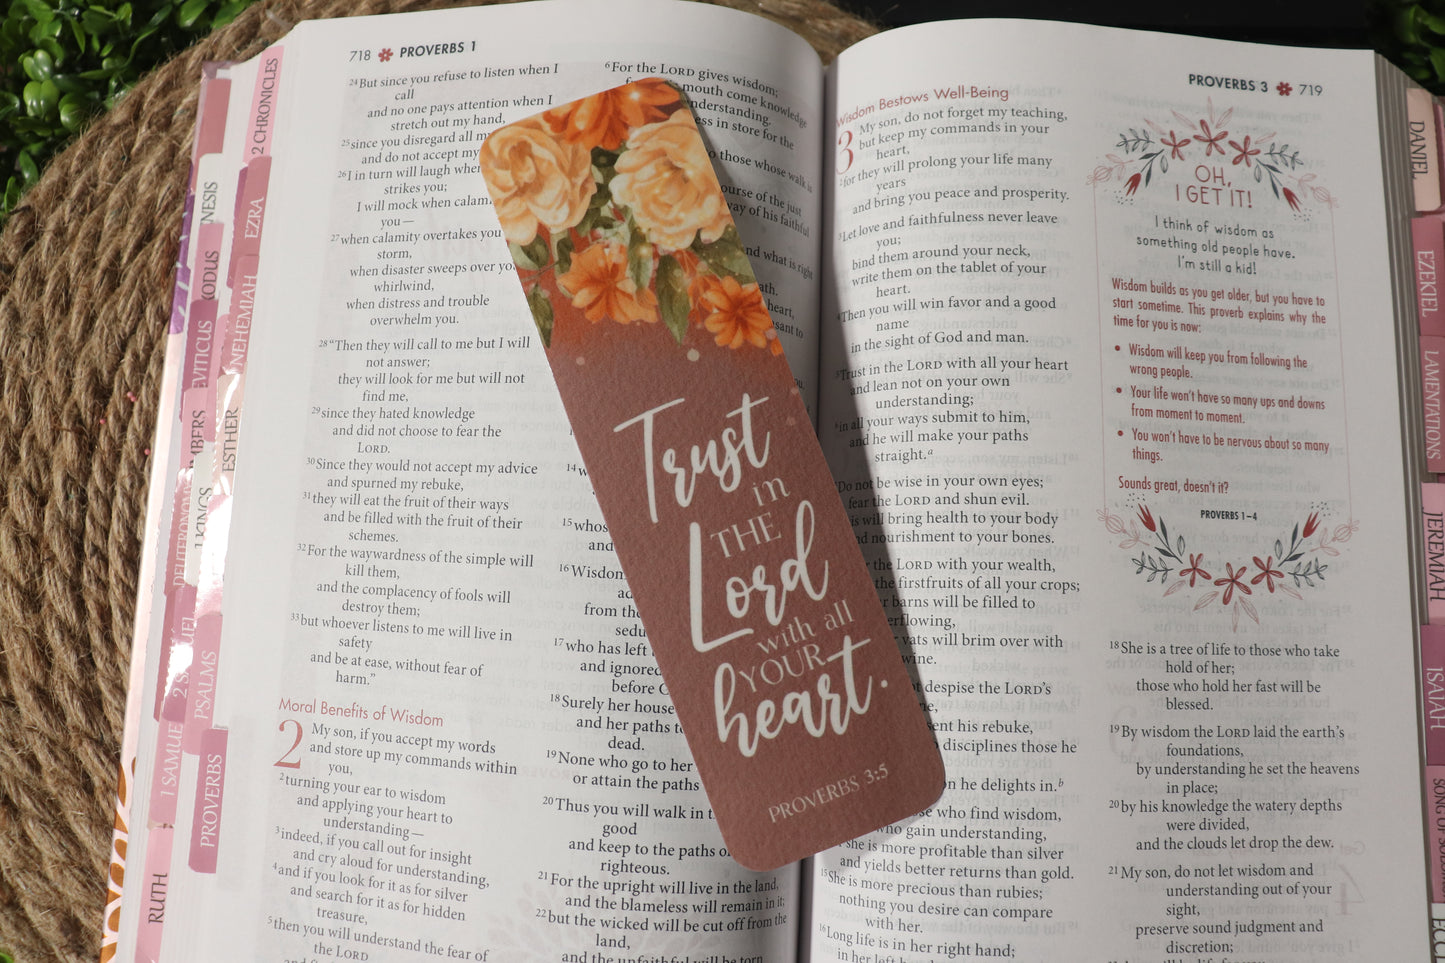 718 PROVERBS 1
24 But since you refuse to listen when I
call
and no one pays attention when I
stretch out my hand,
25 since you disregard all my
and do not accept my
26 I in turn will laugh when
strikes you;
I will mock when calam
you—
27 when calamity overtakes you
storm,
when disaster sweeps over you
whirlwind,
when distress and trouble
overwhelm you.
28 "Then they will call to me but I will
not answer;
they will look for me but will not
find me,
29 since they hated knowledge
and did not choose to fear the
LORD.
30 Since they would not accept my advice
and spurned my rebuke,
31 they will eat the fruit of their ways
and be filled with the fruit of their
schemes.
32 For the waywardness of the simple will
kill them,
and the complacency of fools will
destroy them;
33 but whoever listens to me will live in
safety
and be at ease, without fear of
harm."
Moral Benefits of Wisdom
2 My son, if you accept my words
and store up my commands within
you,
2 turning your ear to wisdom
and applying your heart to
understanding—
3 indeed, if you call out for insight
and cry aloud for understanding,
4 and if you look for it as for silver
and search for it as for hidden
treasure,
5 then you will understand the fear of
the LORD
6 For the LORD gives wisdom;
mouth come knowledge
nderstanding.
ess in store for the
o those whose walk is
ourse of the just
way of his faithful
nd what is right
ath.
heart,
asant to
you.
14
15 whos
and
16 Wisdom
ad
from the
sedu
17 who has left
and ignored
before G
18 Surely her house
and her paths to
dead.
19 None who go to her
or attain the paths
20 Thus you will walk in t
good
and keep to the paths o
righteous.
21 For the upright will live in the land,
and the blameless will remain in it;
22 but the wicked will be cut off from the
land,
and the unfaithful will be torn
Trust
in
THE
Lord
with all
YOUR
heart.
PROVERBS 3:5
PROVERBS 3 719
Wisdom Bestows Well-Being
3 My son, do not forget my teaching,
but keep my commands in your
heart,
2 for they will prolong your life many
years
and bring you peace and prosperity.
3 Let love and faithfulness never leave
you;
bind them around your neck,
write them on the tablet of your
heart.
4 Then you will win favor and a good
name
in the sight of God and man.
5 Trust in the LORD with all your heart
and lean not on your own
understanding;
6 in all your ways submit to him,
and he will make your paths
straight.a
Do not be wise in your own eyes;
fear the LORD and shun evil.
is will bring health to your body
nd nourishment to your bones.
the LORD with your wealth,
the firstfruits of all your crops;
r barns will be filled to
erflowing,
vats will brim over with
wine.
t despise the LORD's
ne,
sent his rebuke,
disciplines those he
on he delights in.b
se who find wisdom,
who gain understanding,
she is more profitable than silver
and yields better returns than gold.
15 She is more precious than rubies;
nothing you desire can compare
with her.
16 Long life is in her right hand;
in her left ha
OH,
I GET IT!
I think of wisdom as
something old people have.
I'm still a kid!
Wisdom builds as you get older, but you have to
start sometime. This proverb explains why the
time for you is now:
• Wisdom will keep you from following the
wrong people.
• Your life won't have so many ups and downs
from moment to moment.
• You won't have to be nervous about so many
things.
Sounds great, doesn't it?
PROVERBS 1–4
18 She is a tree of life to those who take
hold of her;
those who hold her fast will be
blessed.
19 By wisdom the LORD laid the earth's
foundations,
by understanding he set the heavens
in place;
20 by his knowledge the watery depths
were divided,
and the clouds let drop the dew.
21 My son, do not let wisdom and
understanding out of your
sight,
preserve sound judgment and
discretion;
2 CHRONICLES
NESIS
EZRA
XODUS
NEHEMIAH
EVITICUS
MBERS
ESTHER
DEUTERONOMY
KINGS
2 SAMUEL
PSALMS
1 SAMUE
PROVERBS
RUTH
DANIEL
EZEKIEL
LAMENTATIONS
JEREMIAH
ISAIAH
SONG OF SOLOM
ECCL